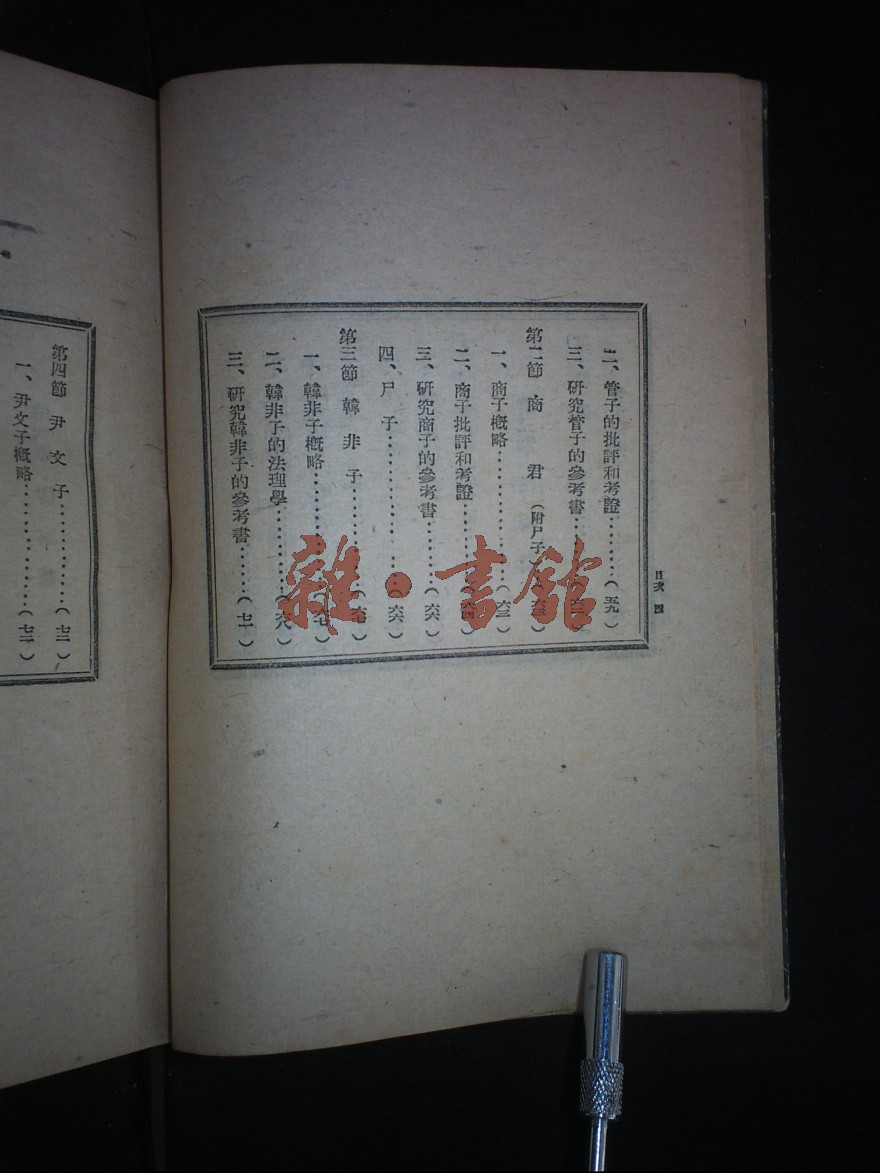 目次 四
二、管子的批評和考證………(五九)
三、研究管子的參考書
第二節 商 君 (附尸子)
一、商子概略………(六三)
二、商子批評和考證………(六四)
三、研究商子的參考書………(六六)
四、尸 子………(六六)
第三節 韓 非 子………(六七)
一、韓非子概略………(六七)
二、韓非子的法理學………(六八)
三、研究韓非子的參考書……(七一)
第四節 尹 文 子…………(七二)
一、尹文子概略…………(七二)
雜·書館